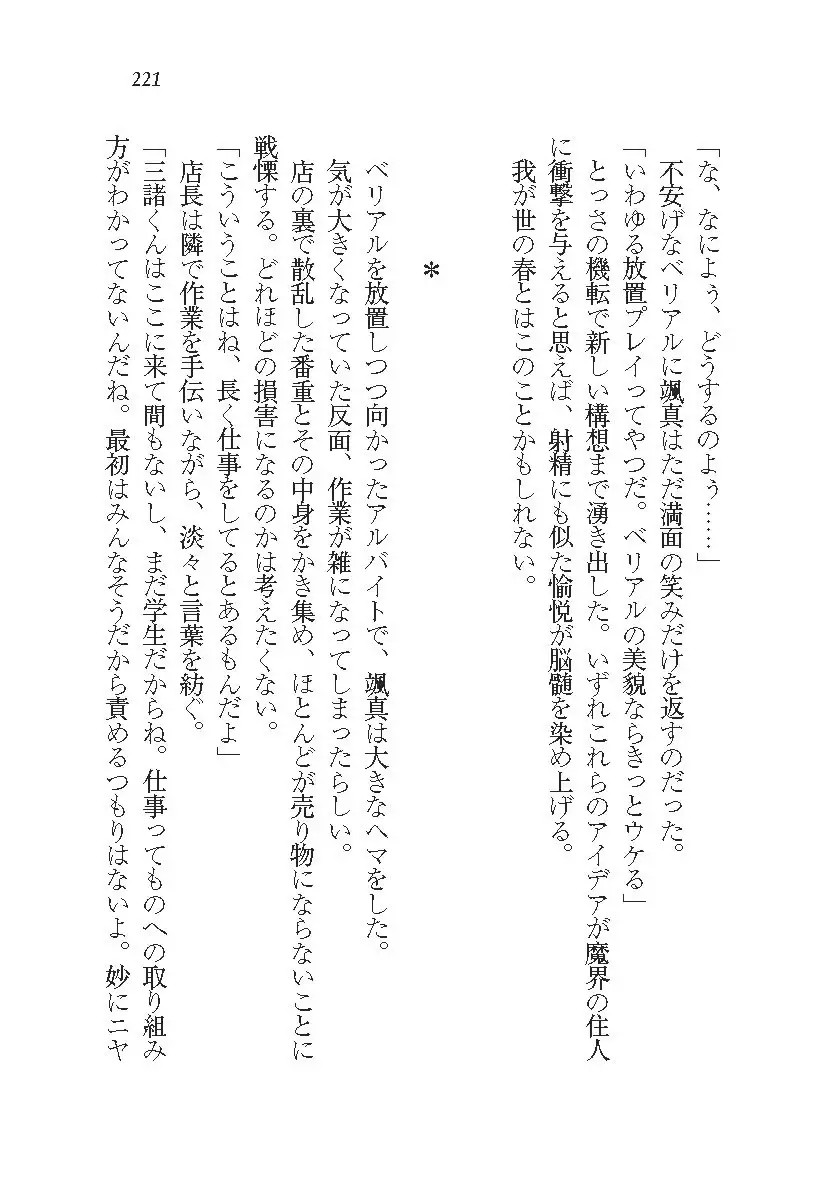 221
「な、なによぅ、どうするのよぅ……」
不安げなベリアルに颯真はただ満面の笑みだけを返すのだった。
「いわゆる放置プレイってやつだ。ベリアルの美貌ならきっとウケる」
とっさの機転で新しい構想まで湧き出した。いずれこれらのアイデアが魔界の住人
に衝撃を与えると思えば、射精にも似た愉悦が脳髄を染め上げる。
我が世の春とはこのことかもしれない。
＊
ベリアルを放置しつつ向かったアルバイトで、颯真は大きなヘマをした。
気が大きくなっていた反面、作業が雑になってしまったらしい。
店の裏で散乱した番重とその中身をかき集め、ほとんどが売り物にならないことに
戦慄する。どれほどの損害になるのかは考えたくない。
「こういうことはね、長く仕事をしてるとあるもんだよ」
店長は隣で作業を手伝いながら、淡々と言葉を紡ぐ。
「三諸くんはここに来て間もないし、まだ学生だからね。仕事ってものへの取り組み
方がわかってないんだね。最初はみんなそうだから責めるつもりはないよ。妙にニヤ